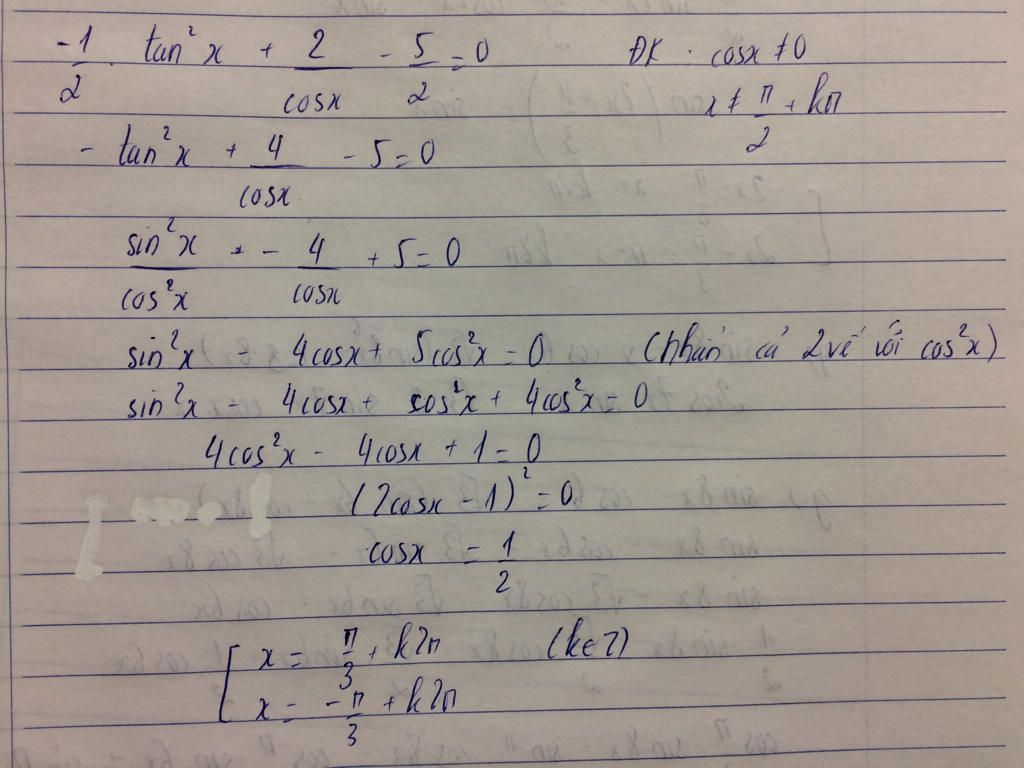 -1/2 . tan²x + 2/cosx - 5/2 = 0 ĐK : cosx ≠ 0
x ≠ π/2 + kπ
- tan²x + 4/cosx - 5 = 0
sin²x/cos²x - 4/cosx + 5 = 0
sin²x - 4cosx + 5cos²x = 0 (nhân cả 2 vế với cos²x)
sin²x - 4cosx + cos²x + 4cos²x = 0
4cos²x - 4cosx + 1 = 0
(2cosx - 1)² = 0
cosx = 1/2
[ x = π/3 + k2π (k∈Z)
x = -π/3 + k2π